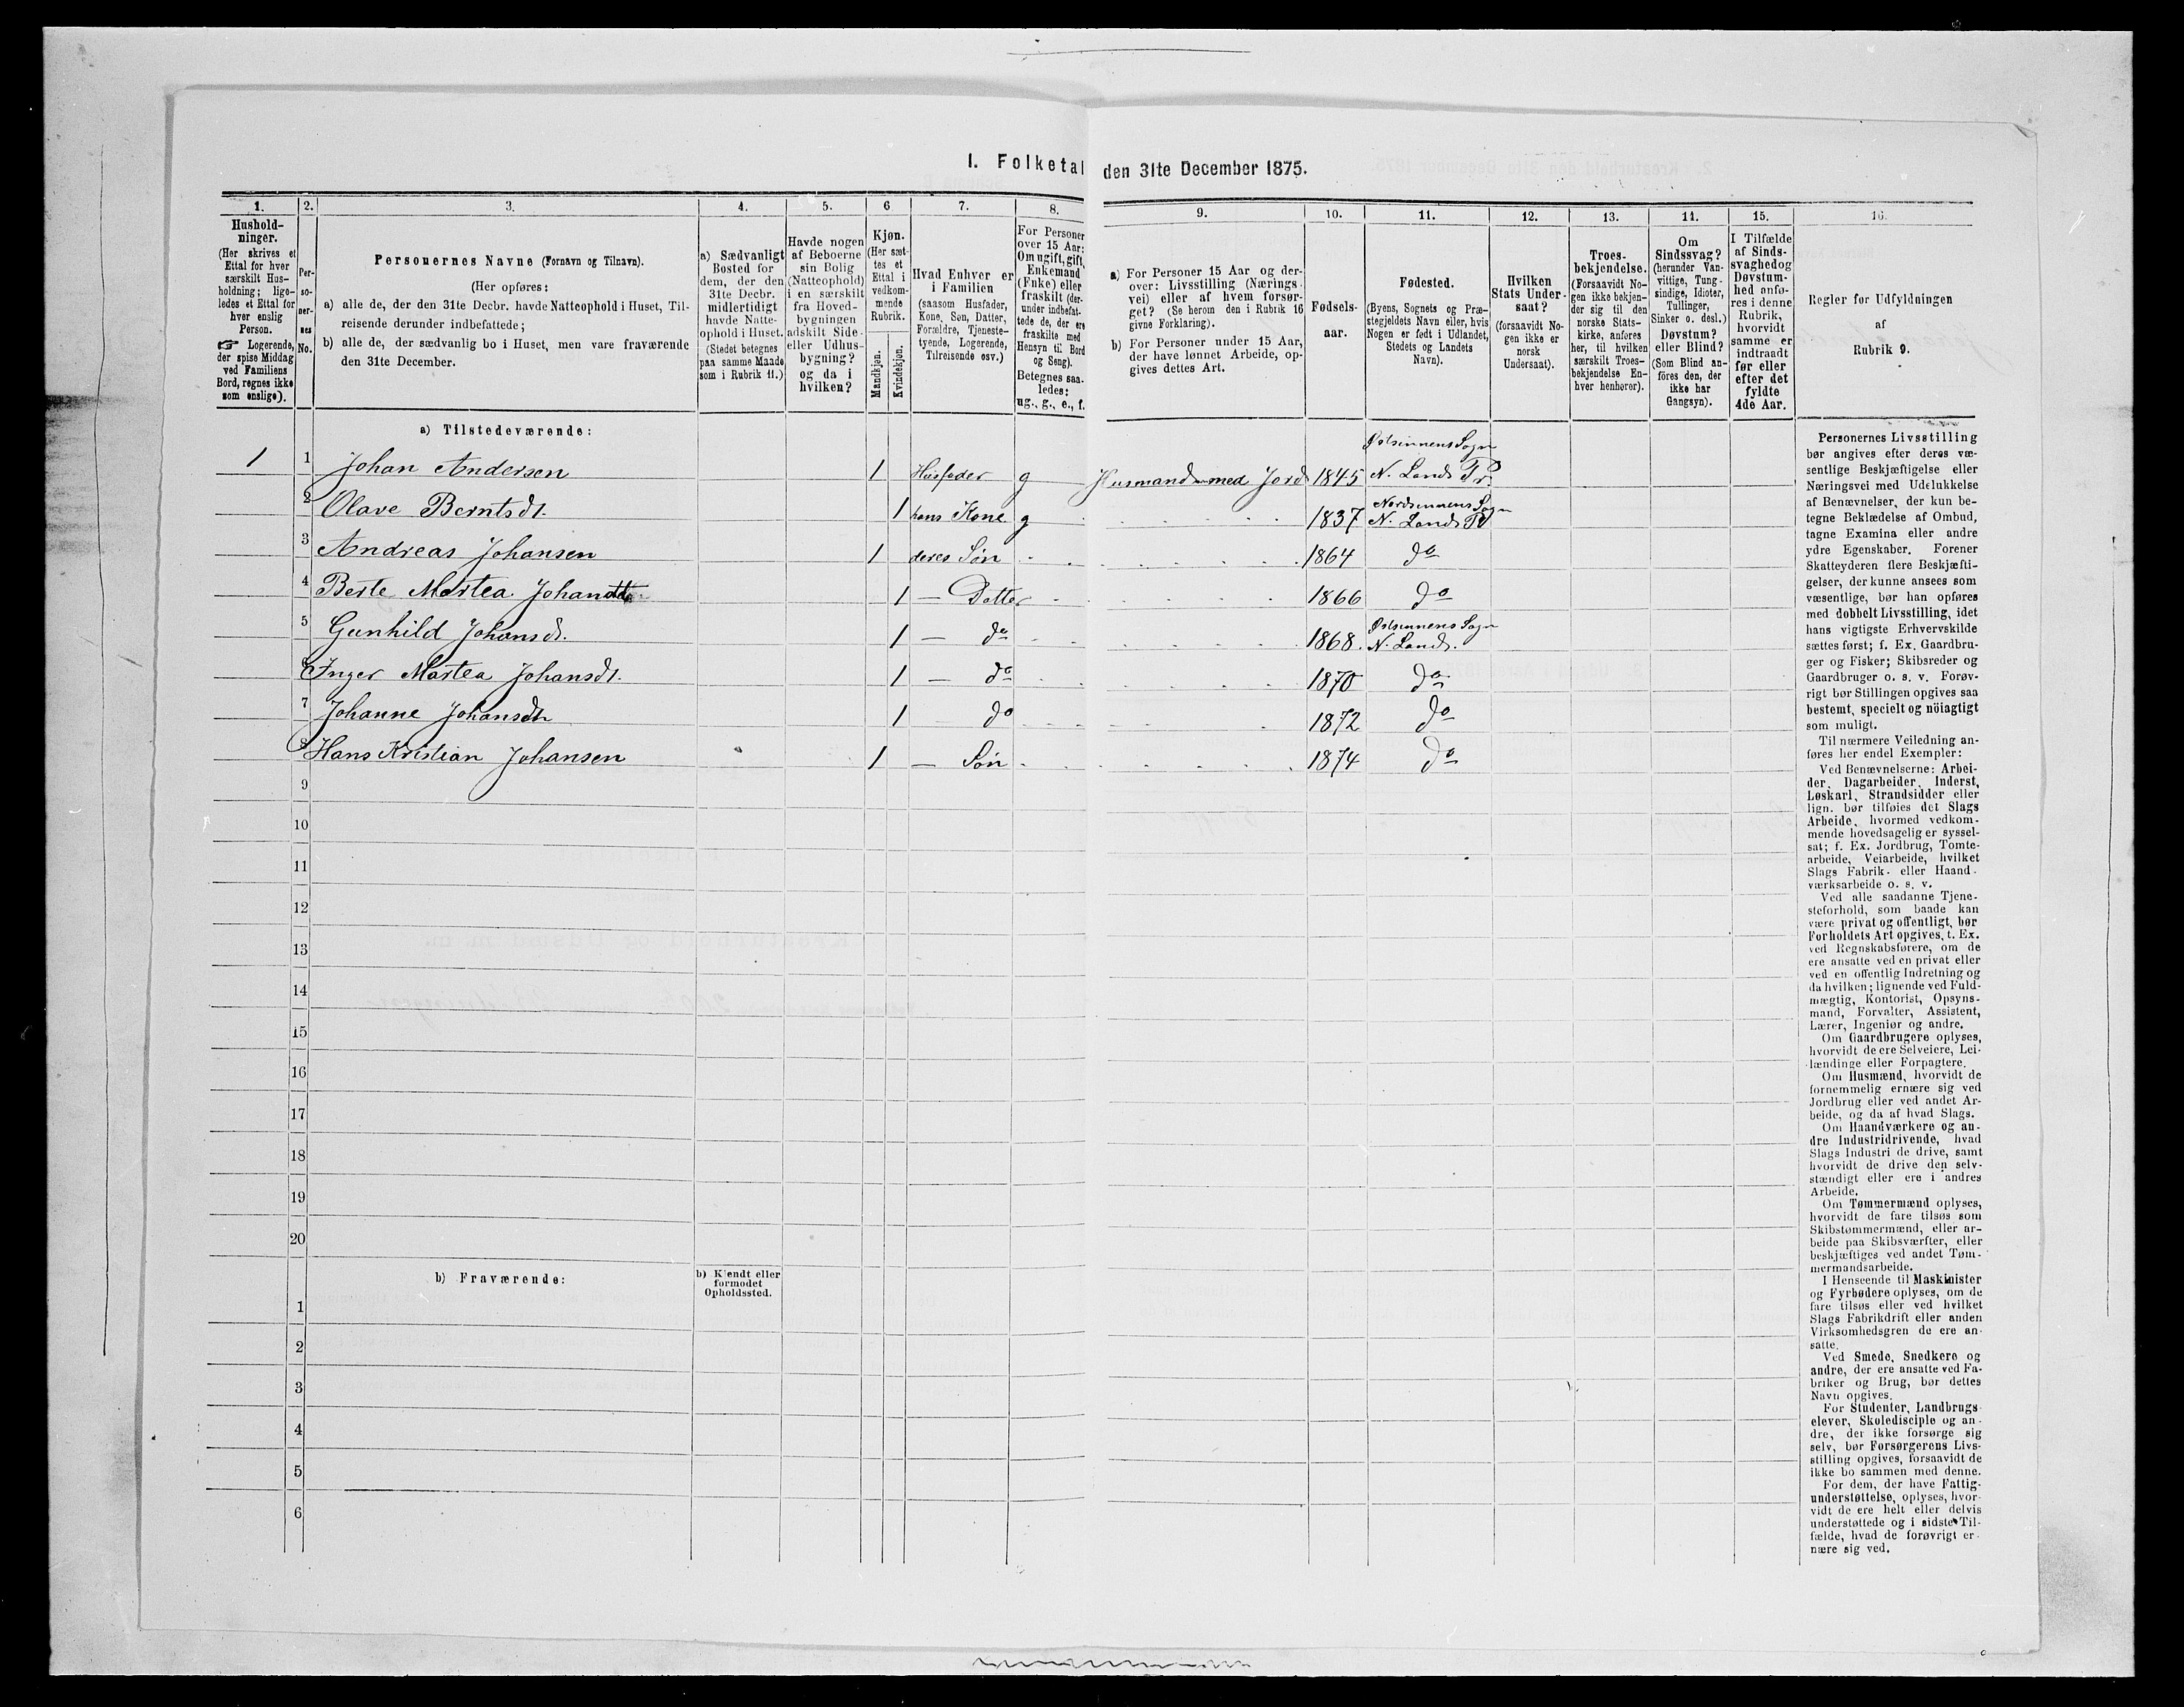 I. Folketal den 31te December 1875.
1. 2. 3. 4. 5. 6 7. 8. 9. 10. 11. 12. 13. 14. 15. 16.
Hushold-
ninger.
(Her skrives et
Ettal for hver
særskilt Hus-
holdning; lige-
ledes et Ettal for
hver enslig
Person.
☞ Logerende,
der spise Middag
ved Familiens
Bord, regnes ikke
som enslige).
Per-
so-
ner-
nes
No.
Personernes Navne (Fornavn og Tilnavn).
(Her opføres:
a) alle de, der den 31te Decbr. havde Natteophold i Huset, Til-
reisende derunder indbefattede;
b) alle de, der sædvanlig bo i Huset, men vare fraværende
den 31te December.
a) Sædvanligt
Bosted for
dem, der den
31te Decbr.
midlertidigt
havde Natte-
ophold i Huset.
(Stedet betegnes
paa samme Maade
som i Rubrik 11.)
Havde nogen
af Beboerne
sin Bolig
(Natteophold)
i en særskilt
fra Hoved-
bygningen
adskilt Side-
eller Udhus-
bygning?
og da i
hvilken?
Kjøn.
(Her sæt-
tes et
Ettal i
vedkom-
mende
Rubrik.
Mandkjøn.
Kvindekjøn.
Hvad Enhver er
i Familien
(saasom Husfader,
Kone, Søn, Datter,
Forældre, Tjeneste-
tyende, Logerende,
Tilreisende osv.)
For Personer
over 15 Aar:
Om ugift, gift,
Enkemand
(Enke) eller
fraskilt (der-
under indbefat-
tede de, der ere
fraskilte med
Hensyn til Bord
og Seng).
Betegnes saa-
ledes:
ug., g., e., f.
a) For Personer 15 Aar og der-
over: Livsstilling (Nærings-
vei) eller af hvem forsør-
get? (Se herom den i Rubrik 16
givne Forklaring).
b) For Personer under 15 Aar,
der have lønnet Arbeide, op-
gives dettes Art.
Fødsels-
aar.
Fødested.
(Byens, Sognets og Præ-
stegjeldets Navn eller, hvis
Nogen er født i Udlandet,
Stedets og Landets
Navn).
Hvilken
Stats Under-
saat?
(forsaavidt No-
gen ikke er
norsk
Undersaat).
Troes-
bekjendelse.
(Forsaavidt No-
gen ikke bekjen-
der sig til den
norske Stats-
kirke, anføres
her, til hvilken
særskilt Troes-
bekjendelse En-
hver henhører).
Om
Sindssvag?
(herunder Van-
vittige, Tung-
sindige, Idioter,
Tullinger,
Sinker o. desl.)
Døvstum?
eller Blind?
(Som Blind an-
føres den, der
ikke har
Gangsyn).
I Tilfælde
af Sinds-
svaghed og
Døvstum-
hed anfø-
res i denne
Rubrik,
hvorvidt
samme er
indtraadt
før eller
efter det
fyldte
4de Aar.
Regler for Udfyldningen
af
Rubrik 9.
a) Tilstedeværende:
Østsinnens Sogn
1 1 Johan Andersen 1 Husfader g Husmand med Jord 1845 N. Lands Pr.
Nordsinnens Sogn
2 Olave Berntsdt. 1 hans Kone g 1837 N. Lands Pr
3 Andreas Johansen 1 deres Søn 1864 do
4 Berte Martea Johansdt. 1 — Datter 1866 do
Østsinnens Sogn
5 Gunhild Johansdt. 1 — do 1868. N. Lands.
6 Inger Martea Johansdt. 1 — do 1870 do
7 Johanne Johansdt 1 — do 1872 do
8 Hans Kristian Johansen 1 — Søn 1874 do
9
10
11
12
13
14
15
16
17
18
19
20
b) Fraværende:
b) Kjendt eller
formodet
Opholdssted.
1
2
3
4
5
6
Personernes Livsstilling
bør angives efter deres væ-
sentlige Beskjæftigelse eller
Næringsvei med Udelukkelse
af Benævnelser, der kun be-
tegne Beklædelse af Ombud,
tagne Examina eller andre
ydre Egenskaber. Forener
Skatteyderen flere Beskjæfti-
gelser, der kunne ansees som
væsentlige, bør han opføres
med dobbelt Livsstilling, idet
hans vigtigste Erhvervskilde
sættes først; f. Ex. Gaardbru-
ger og Fisker; Skibsreder og
Gaardbruger o. s. v. Forøv-
rigt bør Stillingen opgives saa
bestemt, specielt og nöiagtigt
som muligt.
Til nærmere Veiledning an-
føres her endel Exempler:
Ved Benævnelserne: Arbei-
der, Dagarbeider, Inderst,
Løskarl, Strandsidder eller
lign. bør tilføies det Slags
Arbeide, hvormed vedkom-
mende hovedsagelig er syssel-
sat; f. Ex. Jordbrug, Tomte-
arbeide, Veiarbeide, hvilket
Slags Fabrik- eller Haand-
værksarbeide o. s. v.
Ved alle saadanne Tjene-
steforhold, som baade kan
være privat og offentligt, bør
Forholdets Art opgives, t. Ex.
ved Regnskabsførere, om de
ere ansatte ved en privat eller
ved en offentlig Indretning og
da hvilken; lignende ved Fuld-
mægtig, Kontorist, Opsyns-
mand, Forvalter, Assistent,
Lærer, Ingeniør og andre.
Om Gaardbrugere oplyses,
hvorvidt de ere Selveiere, Lei-
lændinge eller Forpagtere.
Om Husmænd, hvorvidt de
fornemmelig ernære sig ved
Jordbrug eller ved andet Ar-
beide, og da af hvad Slags.
Om Haandværkere og an-
dre Industridrivende, hvad
Slags Industri de drive, samt
hvorvidt de drive den selv-
stændigt eller ere i andres
Arbeide.
Om Tømmermænd oplyses,
hvorvidt de fare tilsøs som
Skibstømmermænd, eller ar-
beide paa Skibsværfter, eller
beskjæftiges ved andet Tøm-
mermandsarbeide.
I Henseende til Maskinister
og Fyrbødere oplyses, om de
fare tilsøs eller ved hvilket
Slags Fabrikdrift eller anden
Virksomhedsgren de ere an-
satte.
Ved Smede, Snedkere og
andre, der ere ansatte ved Fa-
briker og Brug, bør dettes
Navn opgives.
For Studenter, Landbrugs-
elever, Skoledisciple og an-
dre, der ikke forsørge sig
selv, bør Forsørgerens Livs-
stilling opgives, forsaavidt de
ikke bo sammen med denne.
For dem, der have Fattig-
understøttelse, oplyses, hvor-
vidt de ere helt eller delvis
understøttede og i sidste Til-
fælde, hvad de forøvrigt er-
nære sig ved.